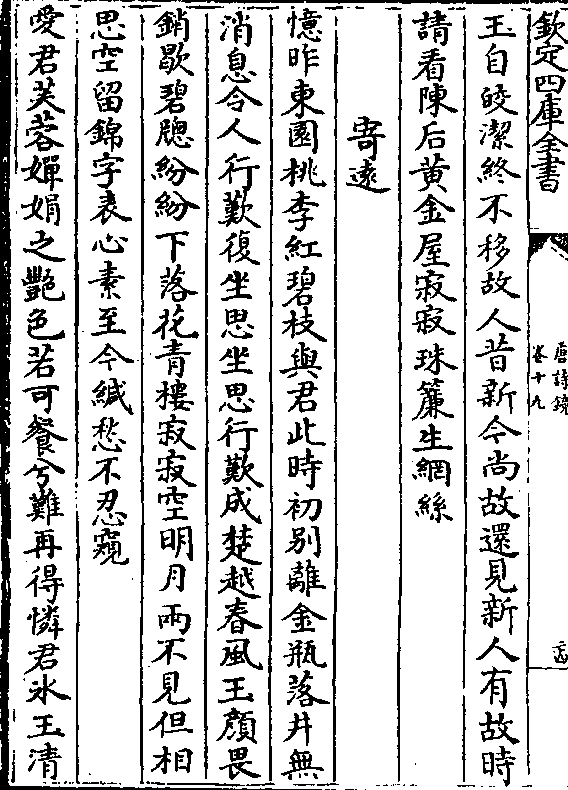 欽定四庫全書
唐詩鏡
卷十九
玉自皎潔終不移故人昔新今尚故還見新人有故時
請看陳后黃金屋寂寂珠簾生網絲
寄遠
憶昨東園桃李紅碧枝與君此時初别離金瓶落井無
消息令人行歎復坐思坐思行歎成楚越春風玉顔畏
銷歇碧牕紛紛下落花青樓寂寂空明月兩不見但相
思空留錦字表心素至今緘愁不忍窺
愛君芙蓉嬋娟之豔色若可餐兮難再得憐君冰玉清